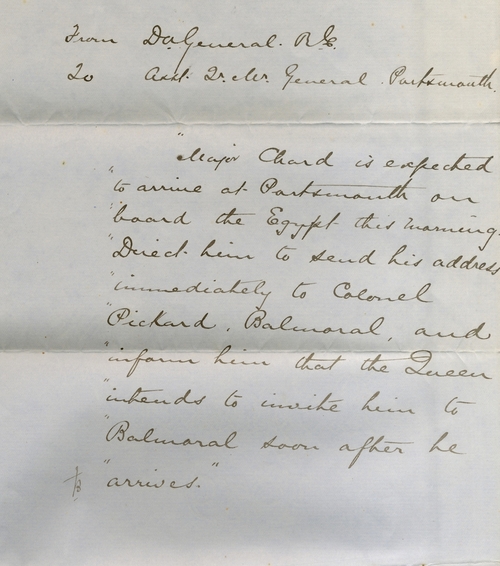 From DaGeneral. R.E.
To Asst. Qr. Mr. General Portsmouth.
"Major Chard is expected
"to arrive at Portsmouth on
"board the Egypt this morning.
"Direct him to send his address
"immediately to Colonel
"Pickard, Balmoral, and
"inform him that the Queen
"intends to invite him to
"Balmoral soon after he
"arrives."